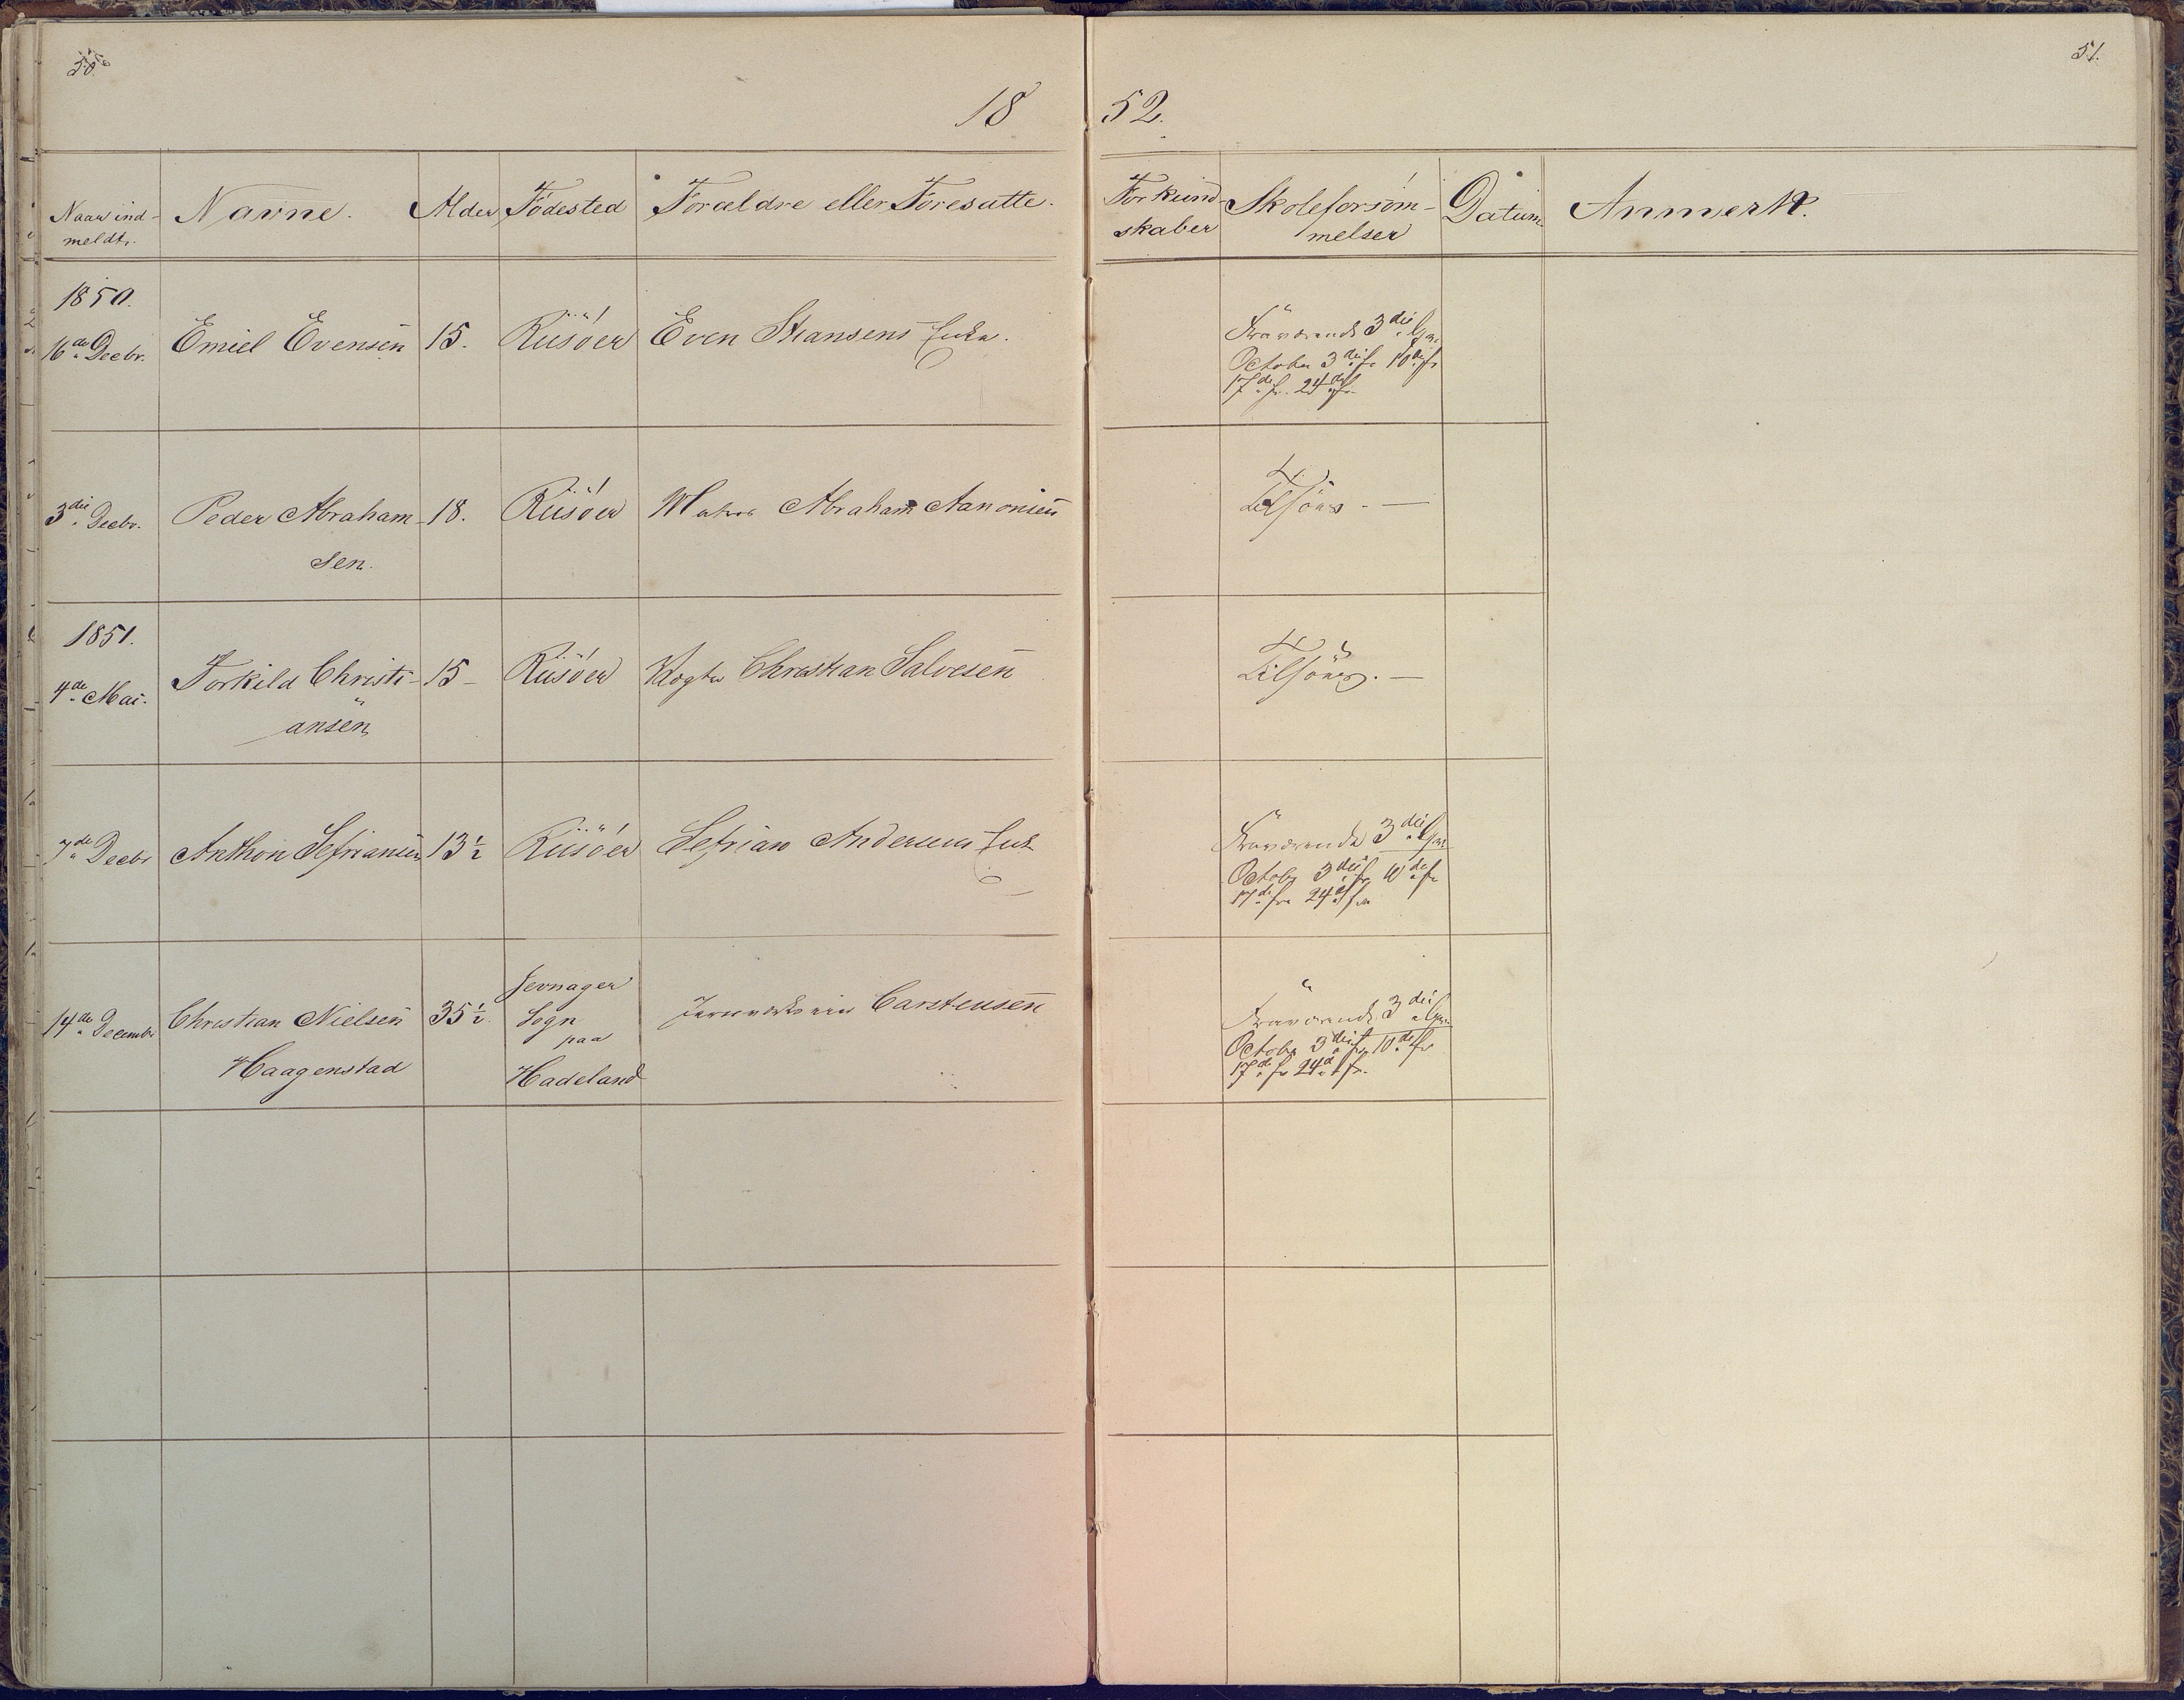 50.
51.
18 52.
Naar ind- Navne. Alder Födested Forældre eller Foresatte. Forkund- Skoleforsöm- Datum Anmerk.
meldt. skaber melser
1850.
16de Decbr. Emiel Evensen 15. Riisöer Even Hansens Enke. Fraværende 3die
October 3die fr. 10de fr
17de fr. 24de fr.
3die Decbr. Peder Abraham- 18. Riisöer Matros Abraham Aanonsen Tilsöes. —
sen.
1851.
4de Mai. Torkild Christi- 15 - Riisöer Christian Salvesen Tilsöes. —
ansen
7de Decbr Anthon Sefriansen 13½ Riisöer Sefrian Andersens Enke Fraværende 3die
October 3die fr 10de fr
17de fr 24de fr
14de December Christian Nielsen 35½ Jevnager Carstensen Fraværende 3die
Haagenstad Sogn October 3die fr. 10de fr
paa 17de fr 24de fr.
Hadeland